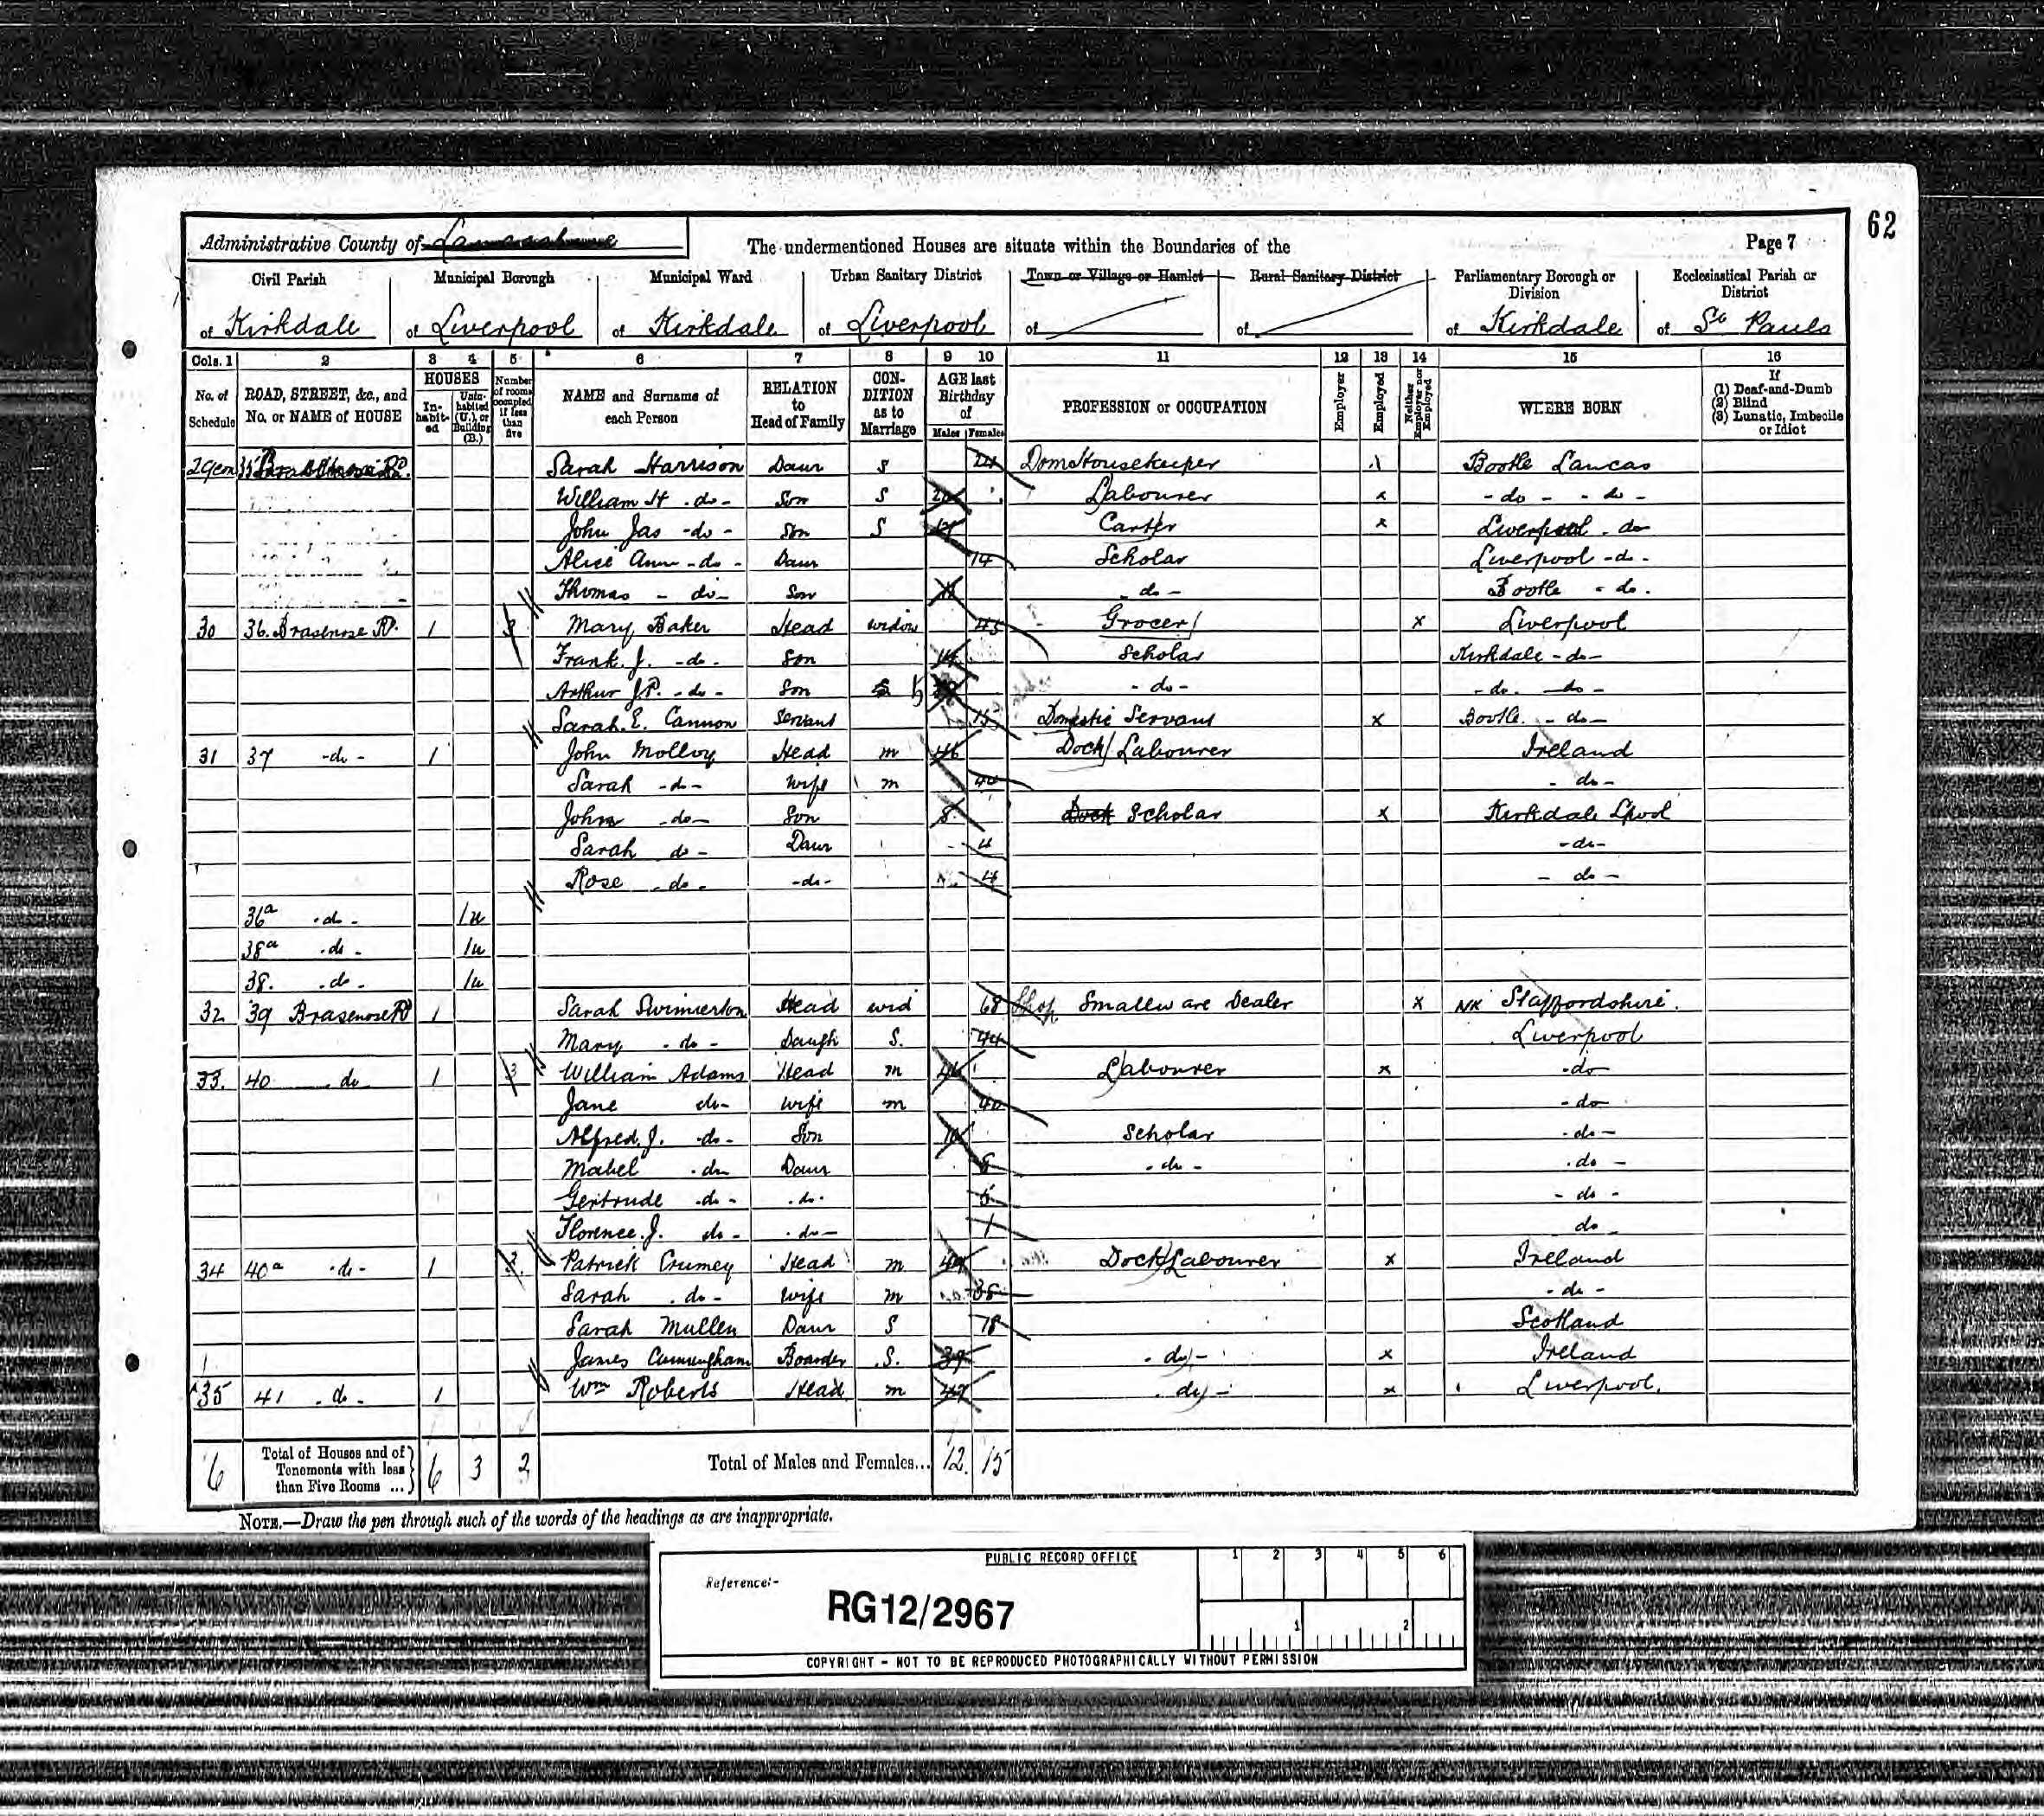 62
Administrative County of Lancashire The undermentioned Houses are situate within the Boundaries of the Page 7
Civil Parish Municipal Borough Municipal Ward Urban Sanitary District Town or Village or Hamlet Rural Sanitary District Parliamentary Borough or Division Ecclesiastical Parish or District
of Kirkdale of Liverpool of Kirkdale of Liverpool of of of Kirkdale of St Pauls
Cols. 1 2 3 4 5 6 7 8 9 10 11 12 13 14 15 16
No. of Schedule ROAD, STREET, &c., and No. or NAME of HOUSE HOUSES In-habit-ed Unin-habited (U.), or Building (B.) Number of rooms occupied if less than five NAME and Surname of each Person RELATION to Head of Family CON-DITION as to Marriage AGE last Birthday of Males Females PROFESSION or OCCUPATION Employer Employed Neither Employer nor Employed WHERE BORN If (1) Deaf-and-Dumb (2) Blind (3) Lunatic, Imbecile or Idiot
29con 35 Sarah Harrison Daur S Dom Housekeeper Bootle Lancas
William H -do- Son S Labourer x -do- -do-
John Jas -do- Son S Carter x Liverpool -do
Alice Ann -do- Daur 14 Scholar Liverpool -do-
Thomas -do- Son -do- Bootle -do.
30 36. Brasenose Rd. 1 3 Mary Baker Head widow 45 Grocer x Liverpool
Frank. J. -do- Son 14 Scholar Kirkdale -do-
Arthur J.P. -do- Son -do- -do. -do-
Sarah. E. Cannon Servant 15 Domestic Servant x Bootle. -do-
31 37 -do- 1 John Molloy Head m 46 Dock Labourer Ireland
Sarah -do- wife m 44 -do-
John -do- Son 8 Dock Scholar x Kirkdale Lpool
Sarah do- Daur -do-
Rose -do- -do- 4 -do-
36a -do- 1u
38a -do- 1u
38. -do- 1u
32 39 Brasenose Rd 1 Sarah Swinnerton Head wid 68 Shop Smallware Dealer x NK Staffordshire.
Mary -do- Daugh S. 44 Liverpool
33. 40 do 1 3 William Adams Head m Labourer x -do-
Jane do- wife m 40 -do-
Alfred. J. -do- Son 10 Scholar -do-
Mabel -do Daur 8 -do- -do-
Gertrude -do- -do- 5 -do-
Florence. J. do- -do- 1 do
34 40a -do- 1 2 Patrick Crumey Head m 49 Dock Labourer x Ireland
Sarah -do- wife m 38 -do-
Sarah Mullen Daur S 18 Scotland
James Cunningham Boarder S. 39 -do- x Ireland
35 41 -do- 1 Wm Roberts Head m 47 -do- x Liverpool.
6 Total of Houses and of Tenements with less than Five Rooms ... 6 3 2 Total of Males and Females... 12 15
NOTE.—Draw the pen through such of the words of the headings as are inappropriate.
PUBLIC RECORD OFFICE 1 2 3 4 5 6
Reference:-
RG12/2967
1 2
COPYRIGHT - NOT TO BE REPRODUCED PHOTOGRAPHICALLY WITHOUT PERMISSION